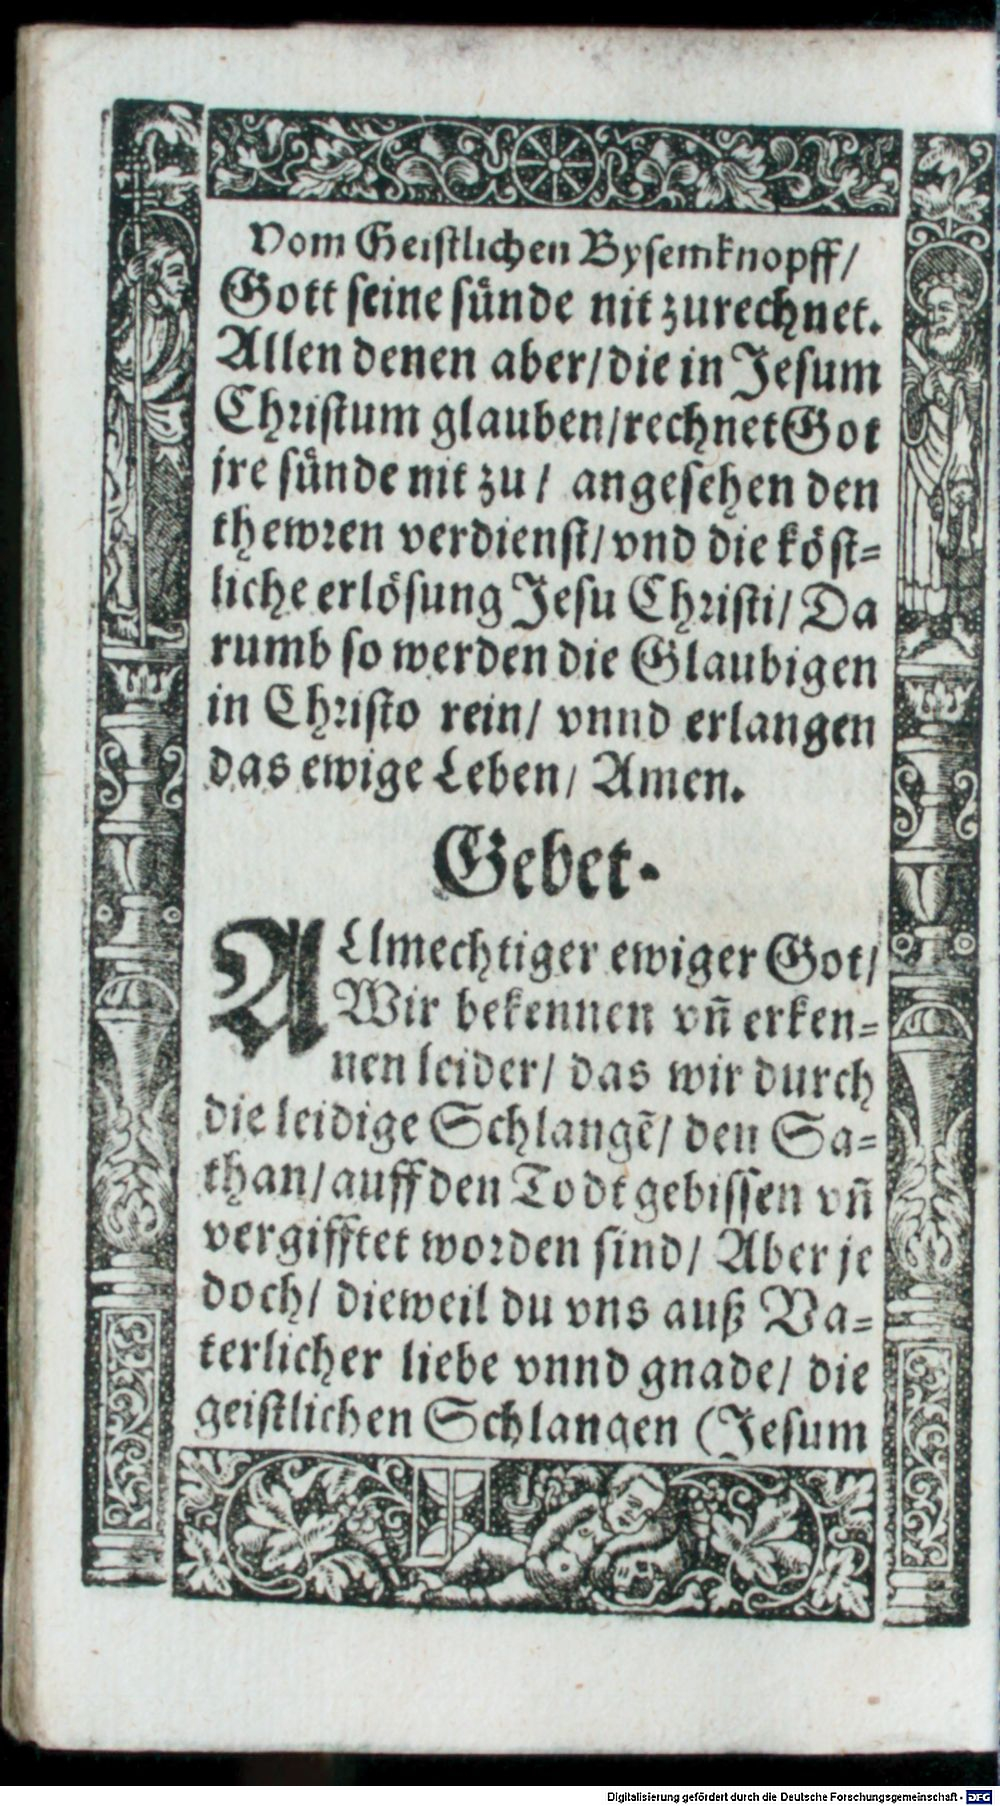 Vom Geistlichen Bysemknopff/
Gott seine sünde nit zurechnet.
Allen denen aber/ die in Jesum
Christum glauben/ rechnet Got
jre sünde nit zu/ angesehen den
thewren verdienst/ vnd die köst=
liche erlösung Jesu Christi/ Da
rumb so werden die Glaubigen
in Christo rein/ vnnd erlangen
das ewige Leben/ Amen.
Gebet.
ALlmechtiger ewiger Got/
Wir bekennen vñ erken=
nen leider/ das wir durch
die leidige Schlangẽ/ den Sa=
than/ auff den Todt gebissen vñ
vergifftet worden sind/ Aber je
doch/ dieweil du vns auß Va=
terlicher liebe vnnd gnade/ die
geistlichen Schlangen (Jesum
Digitalisierung gefördert durch die Deutsche Forschungsgemeinschaft - DFG